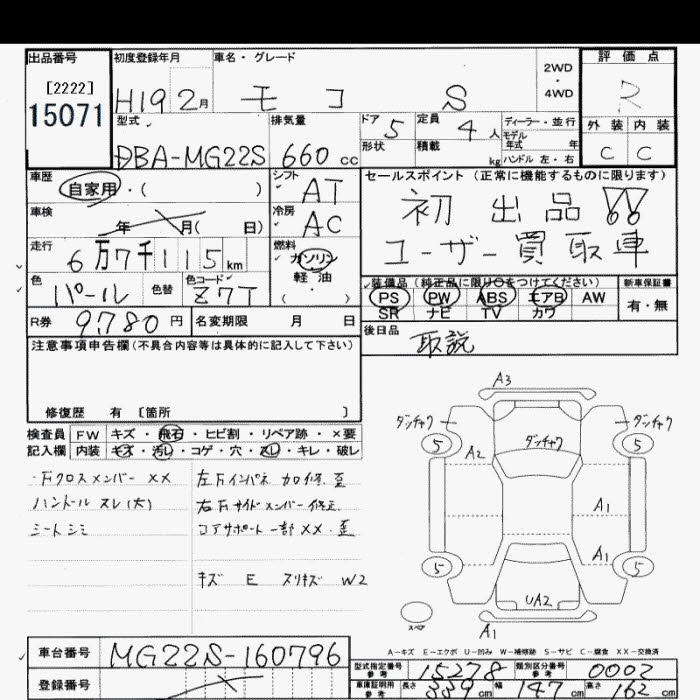 出品番号
[2222]
15071
初度登録年月
H19 2月
車名・グレード
モコ S
2WD
・
4WD
評価点
R
外装 内装
C C
型式
DBA-MG22S
排気量
660 cc
ドア
5
形状
定員
4人
積載
kg
ディーラー・並行
モデル
年式 年
ハンドル 左・右
車歴
自家用・( )
シフト
AT
セールスポイント (正常に機能するものに限ります)
初出品!!
ユーザー買取車
車検
年 月( 日)
冷房
AC
走行
6万7千115km
燃料
ガソリン
軽油
( )
色
パール
色替
色コード
Z7T
装備品 (純正品に限り○をつけてください)
PS PW ABS エアB AW
SR ナビ TV カワ
新車保証書
有・無
R券
9,780円
名変期限 月 日
後日品
取説
注意事項申告欄(不具合内容等は具体的に記入して下さい)
修復歴 有 [箇所 ]
検査員 FW キズ・飛石・ヒビ割・リペア跡・×要
記入欄 内装 キズ・汚レ・コゲ・穴・スレ・キレ・破レ
・Fクロスメンバー XX
ハンドルスレ(大)
シートシミ
左Fインパネ加修、歪
右Fサイドメンバー修正
コアサポート一部XX・歪
キズ E スリキズ W2
A3
ダッチャク
ダッチャク
ダッチャク
5
5
A2
A1
A1
5
5
UA2
スペア
A1
A-キズ E-エクボ U-凹み W-補修跡 S-サビ C-腐食 XX-交換済
車台番号
MG22S-160796
登録番号
型式指定番号
参考
15278
類別区分番号
参考
0002
車庫証明用
参考
長さ
339cm
幅
147cm
高さ
162cm